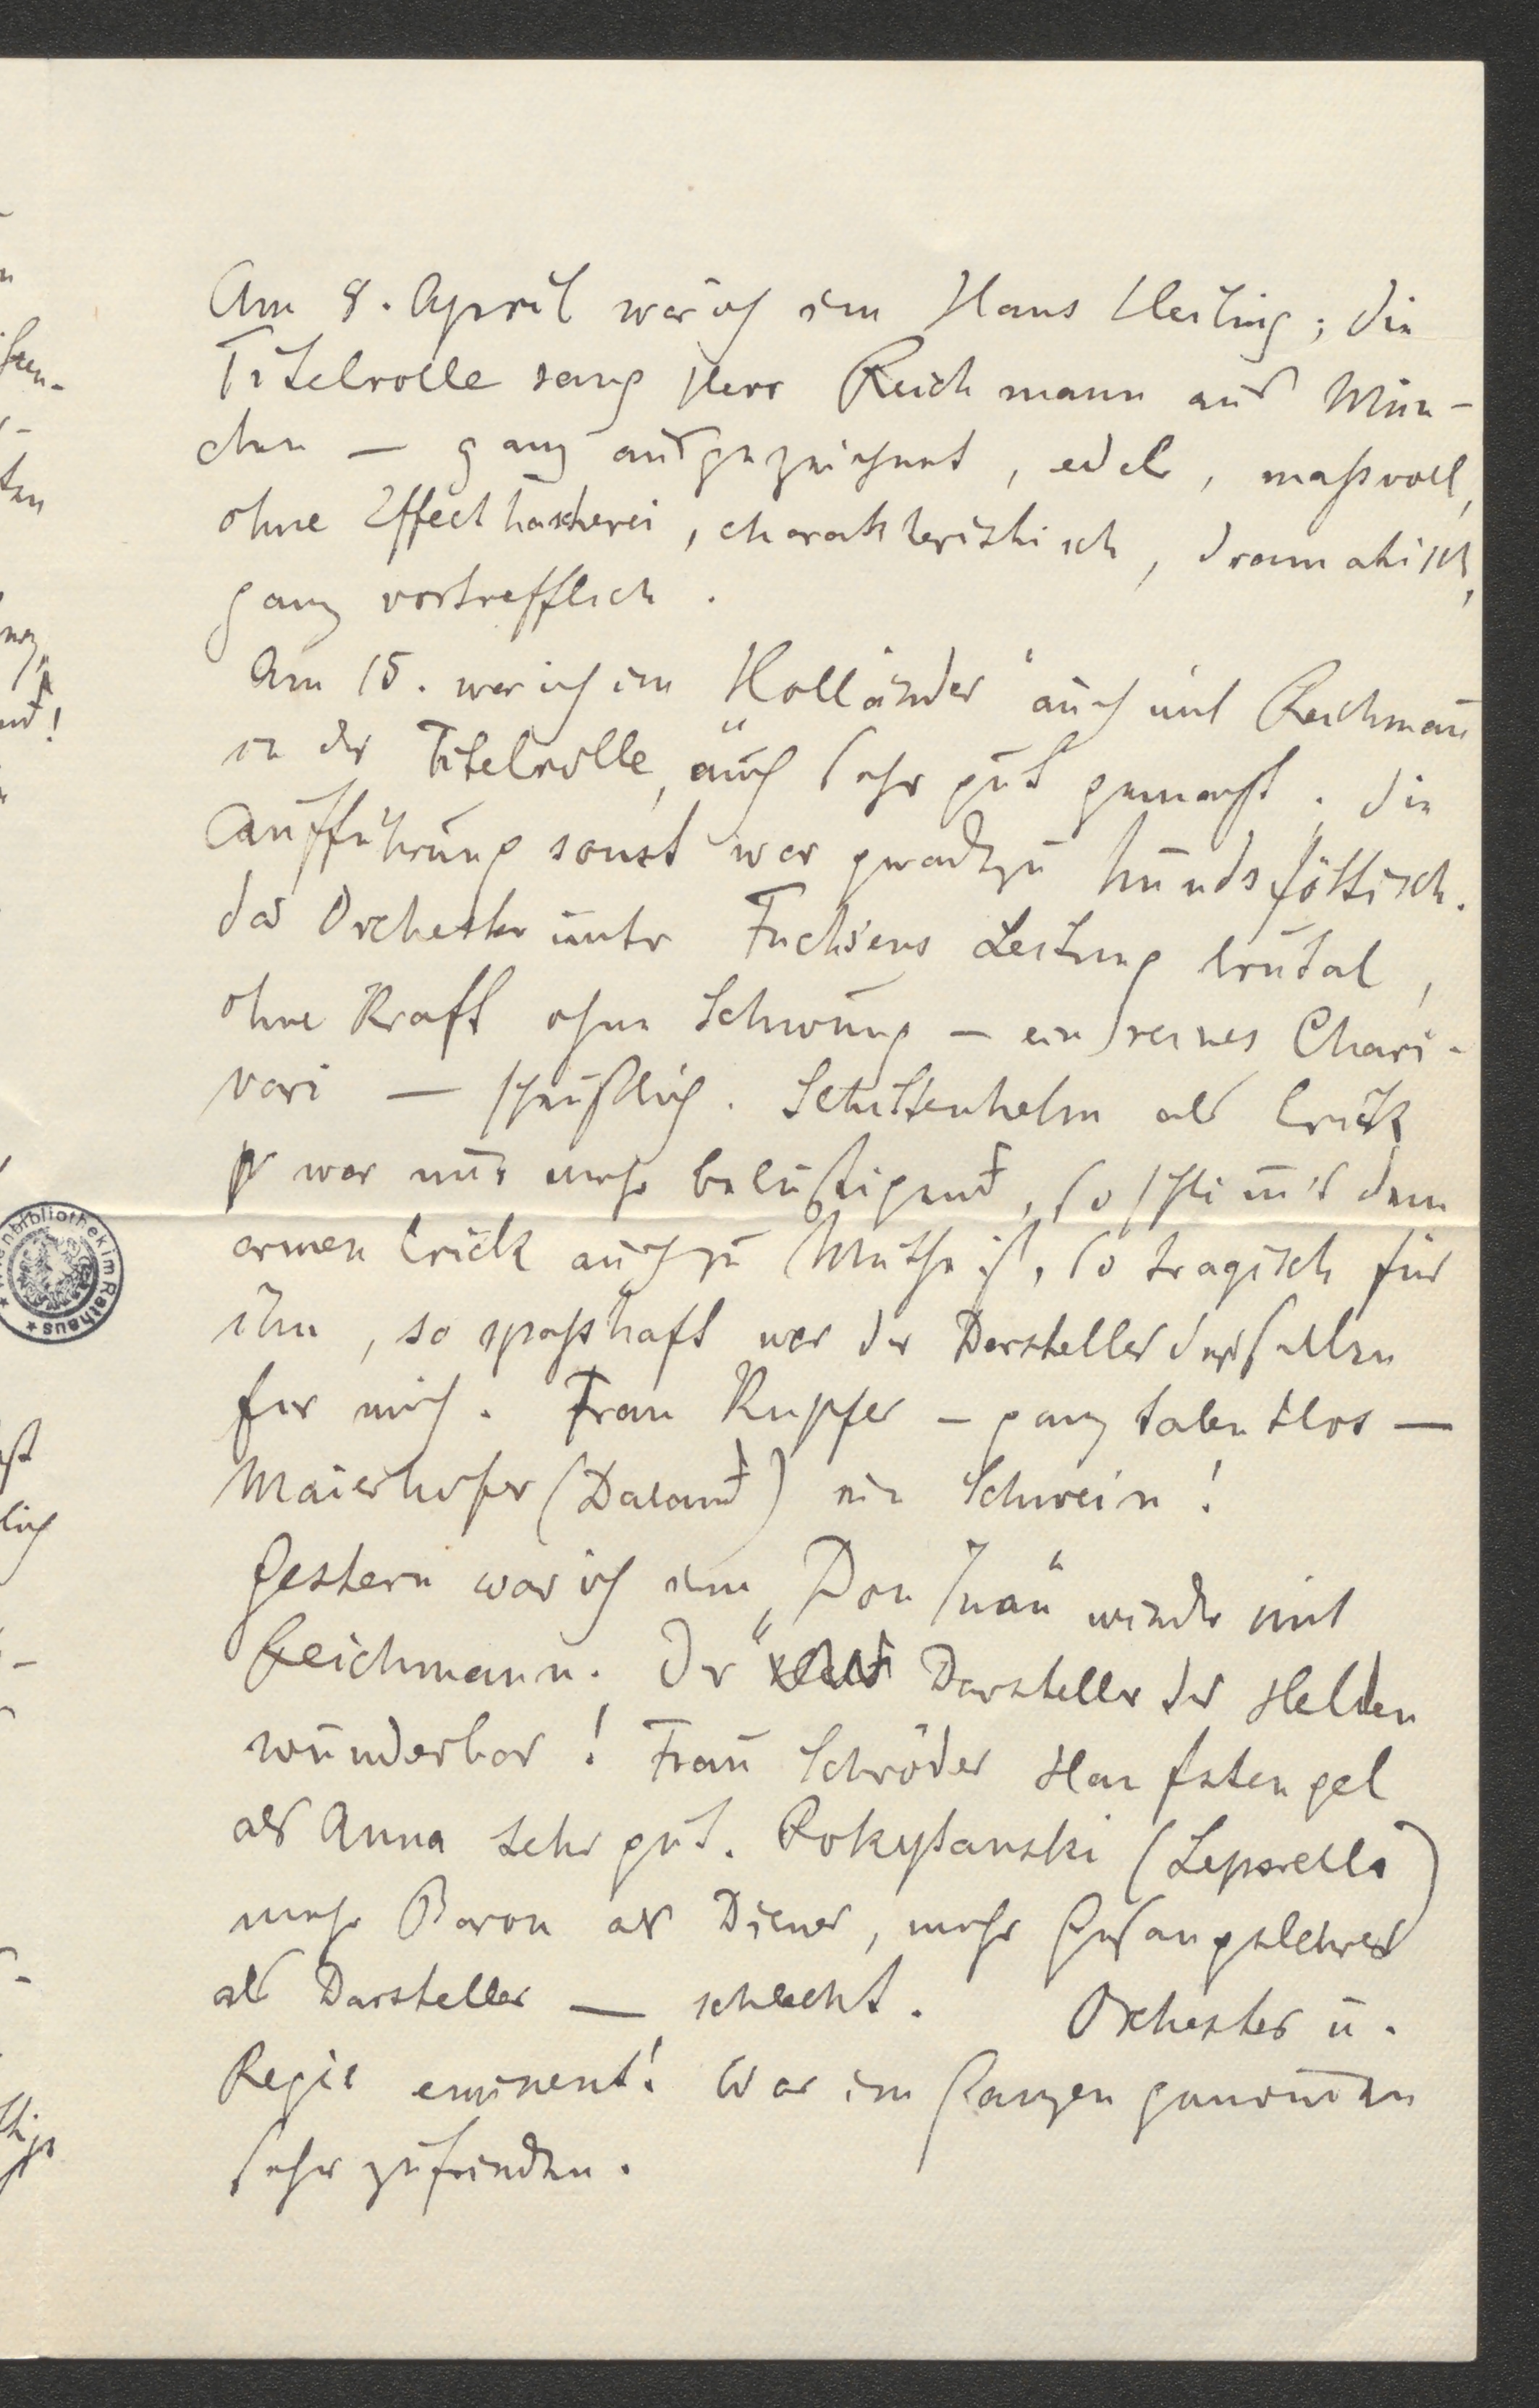 Am 8. April war ich im Hans Heiling; die
Titelrolle sang Herr Reichmann aus Mün-
chen — ganz ausgezeichnet, edel, maßvoll,
ohne Effecthascherei, charakteristisch, dramatisch,
ganz vortrefflich.
Am 15. war ich im „Holländer“ auch mit Reichmañ
in der Titelrolle, auch sehr gut gemacht. die
Aufführung sonst war geradezu hundsföttisch.
das Orchester unter Fuchsens Leitung brutal,
ohne Kraft ohne Schwung — ein reines Chari-
vari — scheußlich. Schittenhelm als Erick
war nur mehr belustigend, so schlim̄ dem
armen Erick auch zu Muthe ist, so tragisch für
ihn, so spaßhaft war der Darsteller desselben
für mich. Frau Kupfer — ganz talentlos —
Maierhofer (Daland) ein Schwein!
Gestern war ich im „Don Juan“ wieder mit
Reichmann. Der Darsteller des Helden
wunderbar! Frau Schröder Hanfstengel
als Anna sehr gut. Rokytanski (Leporello)
mehr Baron als Diener, mehr Gesangslehrer
als Darsteller — schlecht. Orchester u.
Regie eminent! War im Ganzen genom̄en
sehr zufrieden.
bibliothek im Rathaus